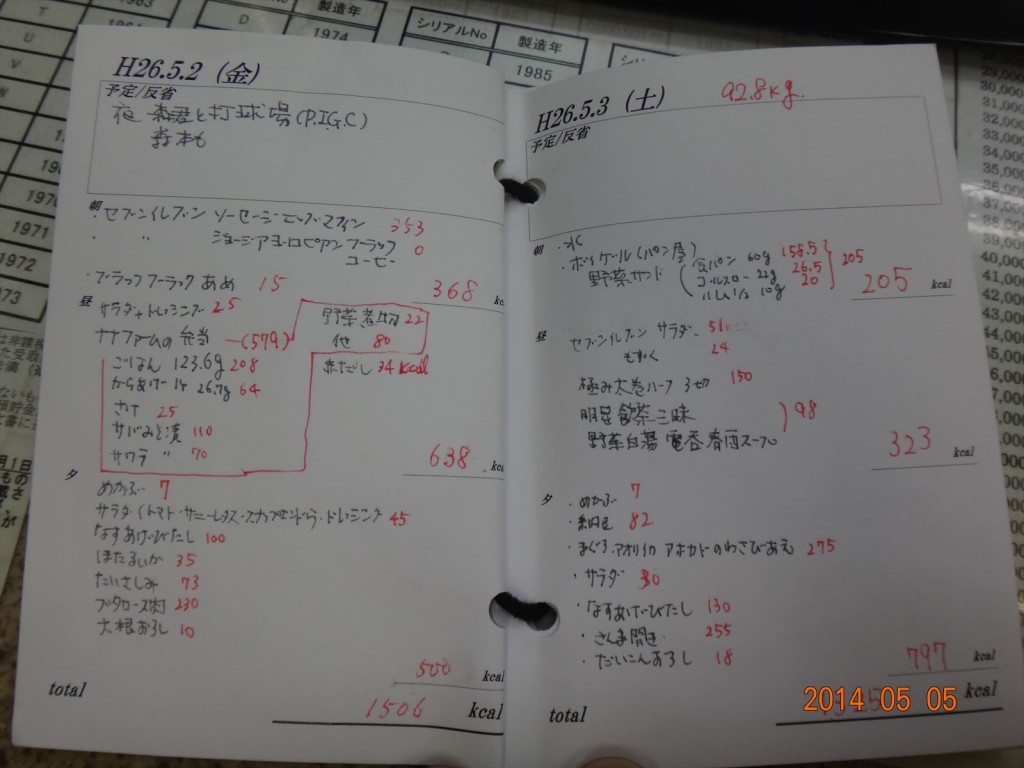 H26.5.2 (金)
予定/反省
夜 森君と打球場(P.I.G.C)
森本も
朝 ・セブンイレブン ソーセージエッグマフィン 353
・ 〃 ジョージアヨーロピアンブラック 0
コーヒー
・ブラックブラックあめ 15
368 kc
昼 サラダ+ドレッシング 25
ナナファームの弁当 (579)
野菜煮物 22
他 80
ごはん 123.6g 208
赤だし 34 kcal
からあげ 1ヶ 26.7g 64
さけ 25
サバみそ漬 110
サワラ 〃 70
638 kc
夕
めかぶ 7
サラダ(トマト・サニーレタス・スナップエンドウ・ドレッシング 45
なすあげびたし 100
ほたるいか 35
たいさしみ 73
ブタロース肉 230
大根おろし 10
500 kcal
total 1506 kcal
H26.5.3 (土) 92.8kg
予定/反省
朝 ・水
・ボンゲール(パン屋)
野菜サンド
食パン 60g 158.5
コールスロー 22g 26.5
ハム1/2 10g 20
205
205 kcal
昼
セブンイレブン サラダ 51
もずく 24
極み太巻ハーフ 3切 150
明星 飲茶三昧
野菜白湯 春雨スープ
98
323 kcal
夕 ・めかぶ 7
・納豆 82
・まぐろ、アオリイカ アボカドのわさびあえ 275
・サラダ 30
・なすあげびたし 130
・さんま開き 255
・だいこんおろし 18
797 kcal
total kcal
2014 05 05
シリアルNo 製造年
1985
製造年
1974
T
U
V
D
1970
1971
1972